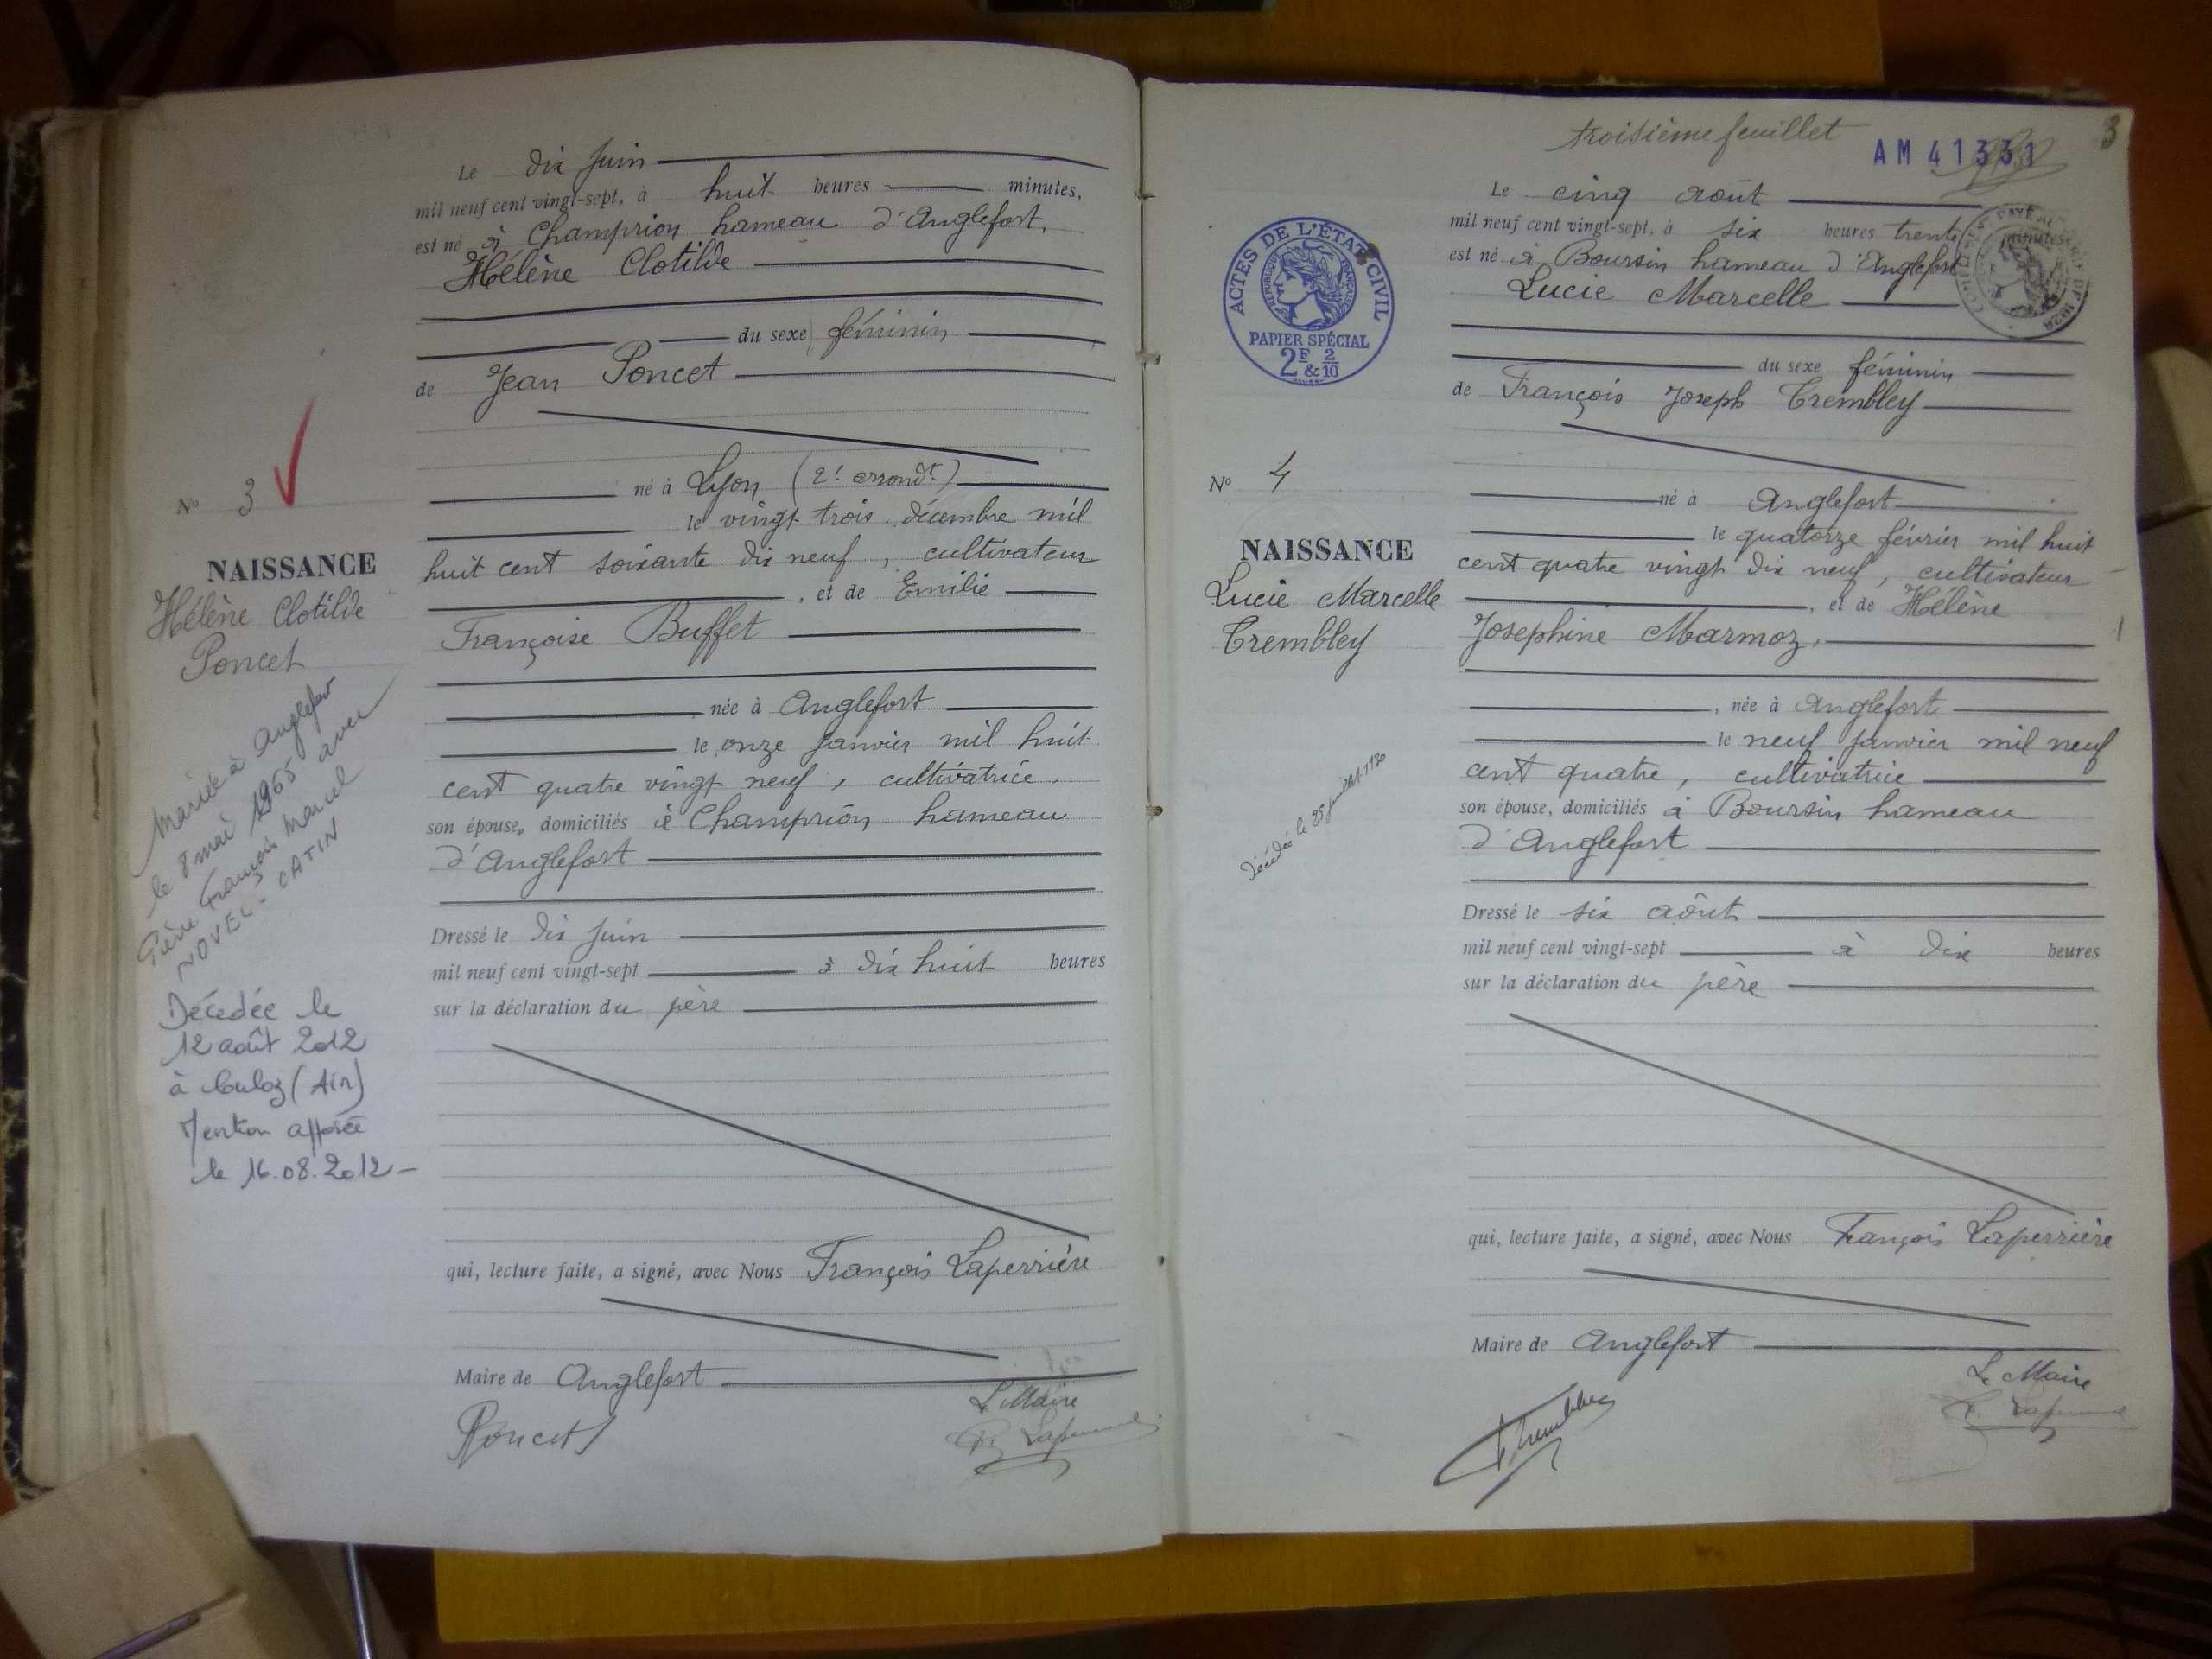 Le dix juin
mil neuf cent vingt-sept, à huit heures minutes,
est né à Champrion hameau d'Anglefort,
Hélène Clotilde
du sexe féminin
de Jean Poncet
né à Lyon (2e arrondt)
le vingt trois décembre mil
huit cent soixante dix neuf, cultivateur
, et de Emilie
Françoise Buffet
née à Anglefort
le onze janvier mil huit
cent quatre vingt neuf, cultivatrice
son épouse, domiciliés à Champrion hameau
d'Anglefort
Dressé le dix juin
mil neuf cent vingt-sept à dix huit heures
sur la déclaration du père
qui, lecture faite, a signé, avec Nous François Laperrière
Maire de Anglefort
Le Maire
Poncet J
No 3
NAISSANCE
Hélène Clotilde
Poncet
Mariée à Anglefort
le 8 mai 1965 avec
Pierre François Marcel
NOVEL-CATIN
Décédée le
12 août 2012
à Culoz (Ain)
Mention apposée
le 16.08.2012-
troisième feuillet
3
AM 41331
ACTES DE L'ÉTAT CIVIL
RÉPUBLIQUE FRANÇAISE
PAPIER SPÉCIAL
2F & 2/10
Le cinq août
mil neuf cent vingt-sept, à six heures trente minutes
est né à Boursin hameau d'Anglefort
Lucie Marcelle
du sexe féminin
de François Joseph Trembley
né à Anglefort
le quatorze février mil huit
cent quatre vingt dix neuf, cultivateur
, et de Hélène
Josephine Marmoz,
, née à Anglefort
le neuf janvier mil neuf
cent quatre, cultivatrice
son épouse, domiciliés à Boursin hameau
d'Anglefort
Dressé le six août
mil neuf cent vingt-sept à dix heures
sur la déclaration du père
qui, lecture faite, a signé, avec Nous François Laperrière
Maire de Anglefort
Le Maire
Trembley
No 4
NAISSANCE
Lucie Marcelle
Trembley
Décédée le 25 juillet 1930